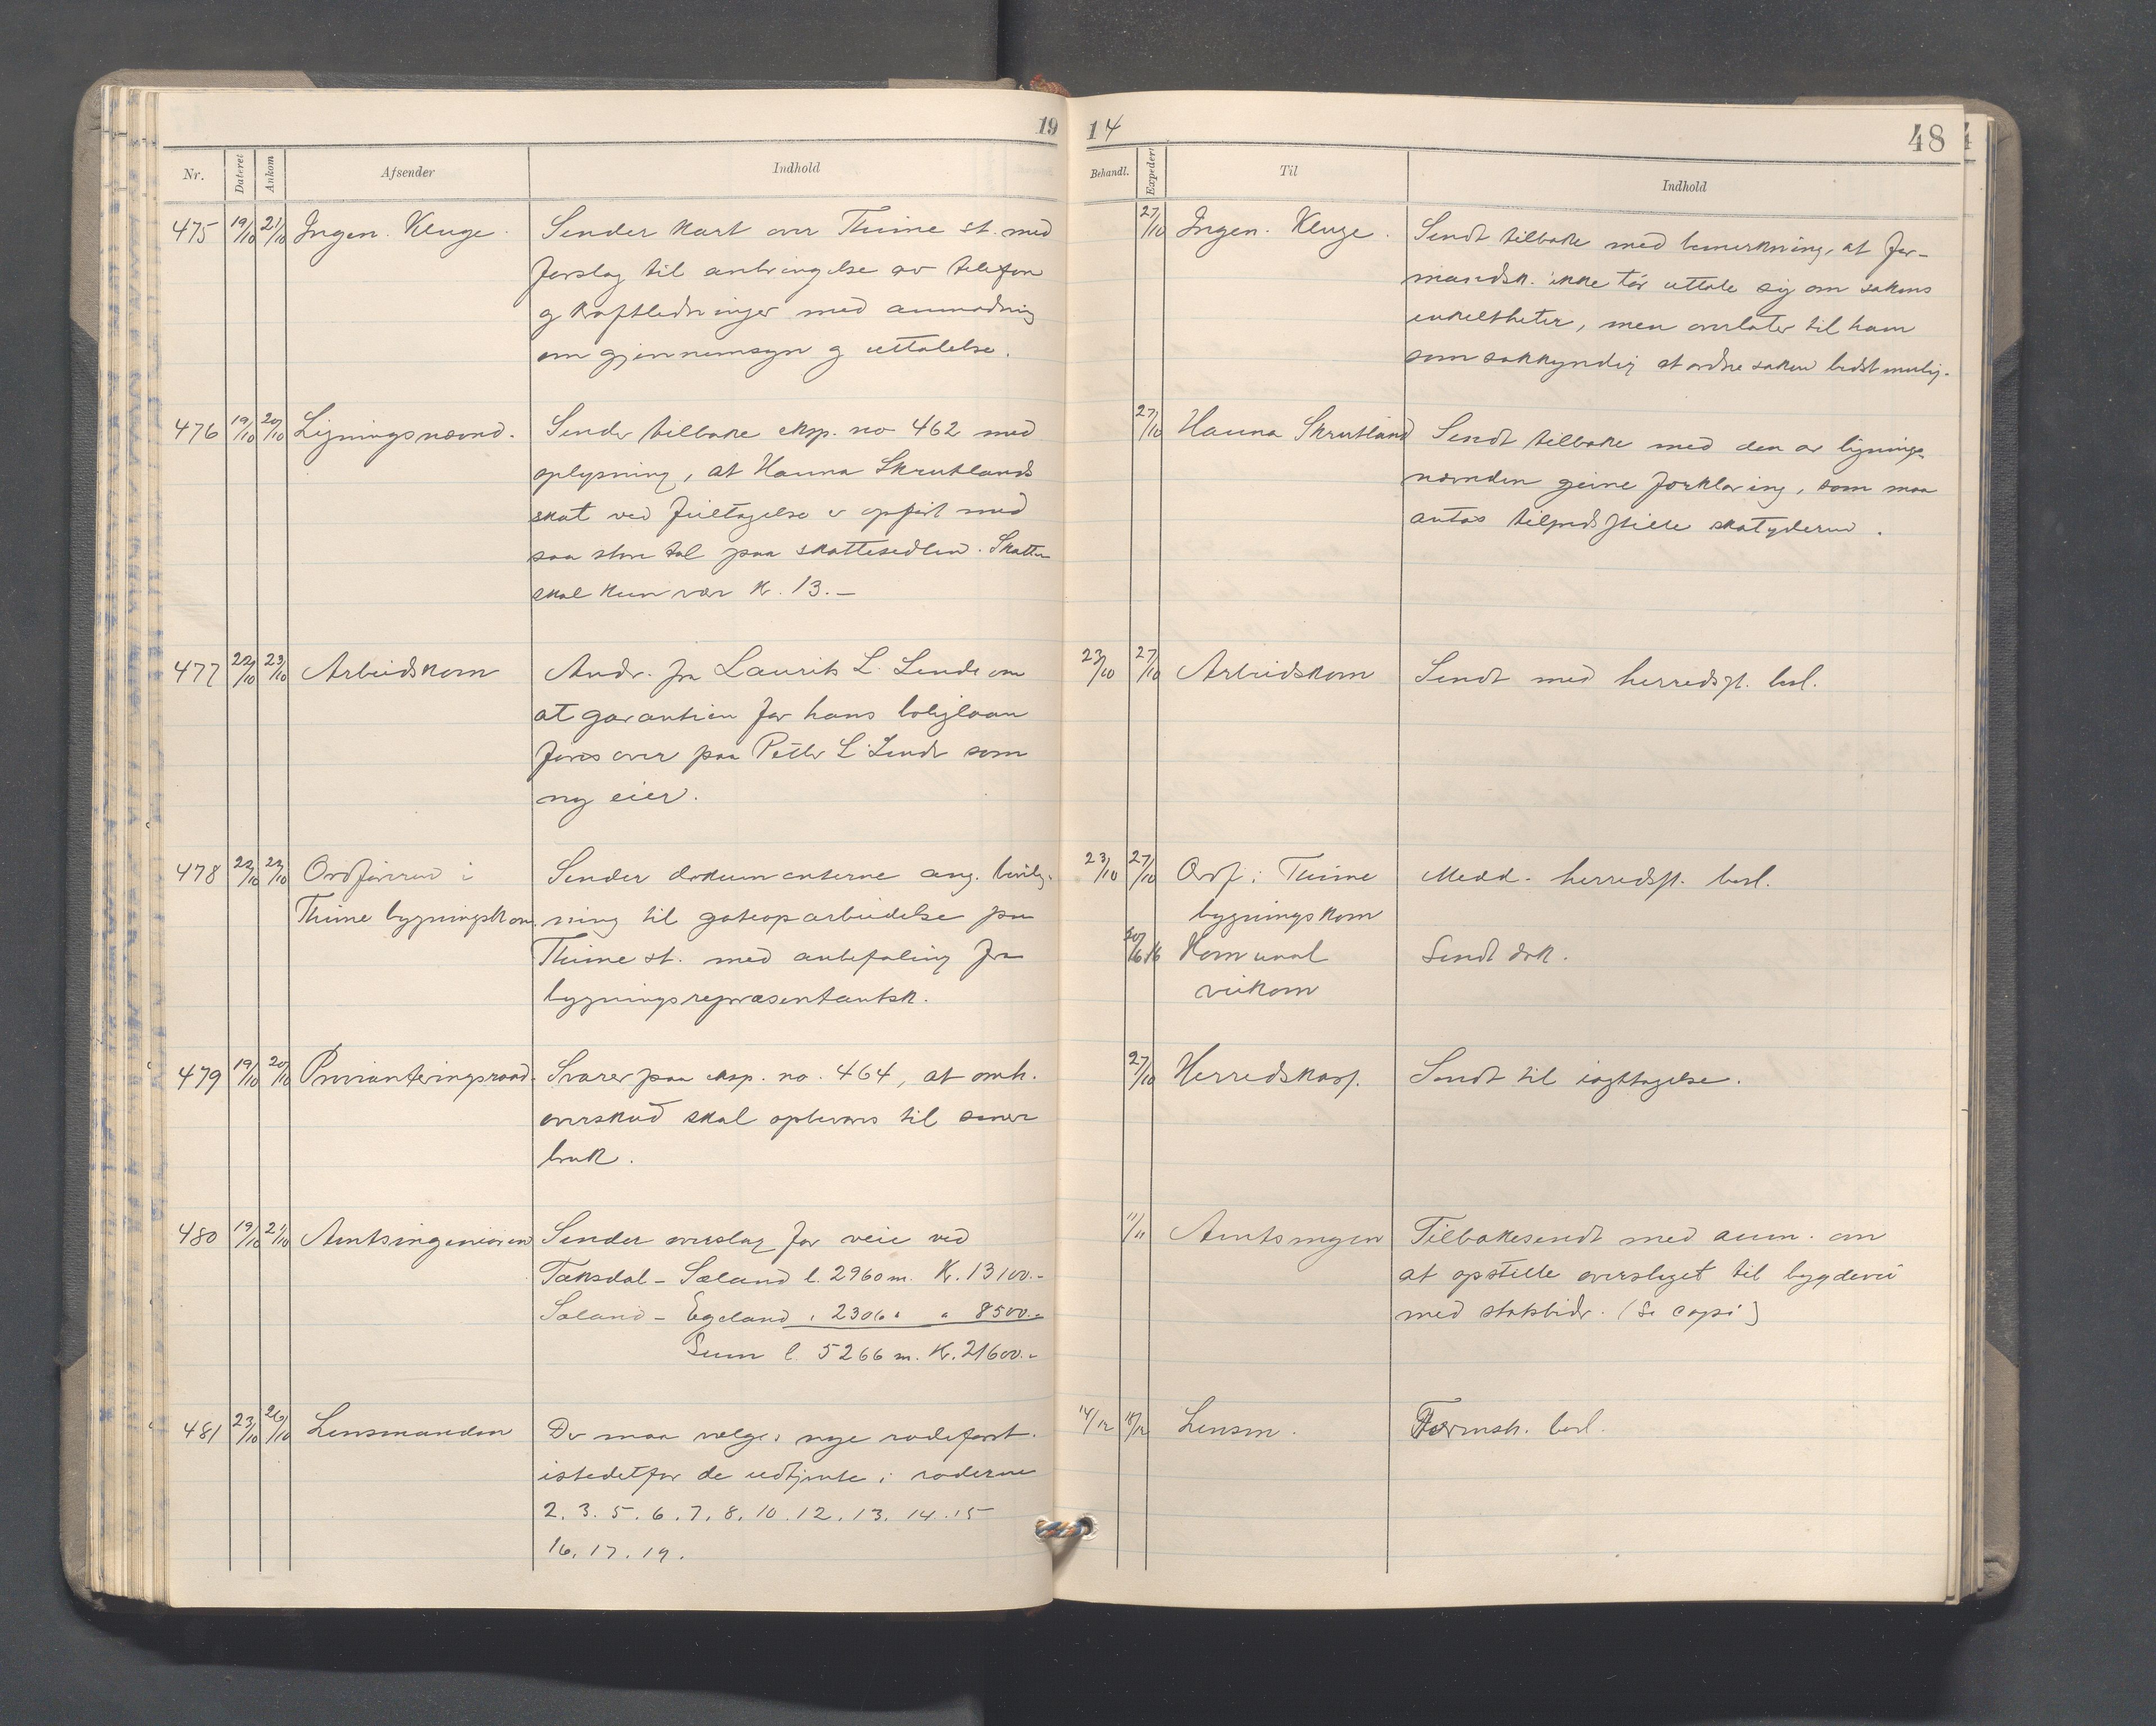 19
Nr. Dateret Ankom Afsender Indhold
475 19/10 21/10 Ingen. Kluge. Sender kart over Thime st. med
forslag til anbringelse av telefon
og kraftledninger med anmodning
om gjennemsyn og uttalelse.
476 19/10 20/10 Ligningsnævnd. Sender tilbake eksp. no 462 med
oplysning, at Hanna Skrutlands
skat ved feiltagelse er opført med
saa store tal paa skattesedlen. Skatten
skal kun være kr. 13.-
477 22/10 23/10 Arbeidskom Andr. fra Laurits L. Lende om
at garantien for hans boliglaan
føres over paa Peter L. Lende som
ny eier.
478 22/10 22/10 Ordføreren i Sender dokumenterne ang. bevilg-
Thime bygningskom. ning til gateoparbeidelse paa
Thime st. med anbefaling fra
bygningsrepræsentantsk.
479 19/10 20/10 Provianteringsraad. Svarer paa eksp. no. 464, at omh.
overskud skal opbevares til senere
bruk.
480 19/10 21/10 Amtsingeniøren Sender overslag for veie ved
Taksdal - Sæland l. 2960 m. Kr. 13100.-
Sæland - Egeland " 2306 " " 8500.-
Sum l 5266 m. Kr. 21600.-
481 23/10 26/10 Lensmanden Der maa vælges nye rodeforst.
istedetfor de udtjente i roderne
2. 3. 5. 6. 7. 8. 10. 12. 13. 14. 15
16. 17. 19.
14 48
Behandl. Expedert Til Indhold
27/10 Ingen. Kluge. Sendt tilbake med bemerkning, at for-
mandsk. ikke tør uttale sig om sakens
enkeltheter, men overlater til ham
som sakkyndig at ordne saken bedst mulig.
27/10 Hanna Skrutland Sendt tilbake med den av lignings-
nævnden givne forklaring, som maa
antas tilfredsstille skatyderen.
23/10 27/10 Arbeidskom Sendt med herredsst. besl.
23/10 27/10 Ordf. i Thime Medd. herredsst. besl.
bygningskom
16 Komunal Sendt dok.
veikom
27/10 Herredskass. Sendt til iagttagelse.
11/11 Amtsingen Tilbakesendt med anm. om
at opstille overslaget til bygdevei
med statsbidr. (Se copi)
14/12 18/12 Lensm. Formsk. besl.